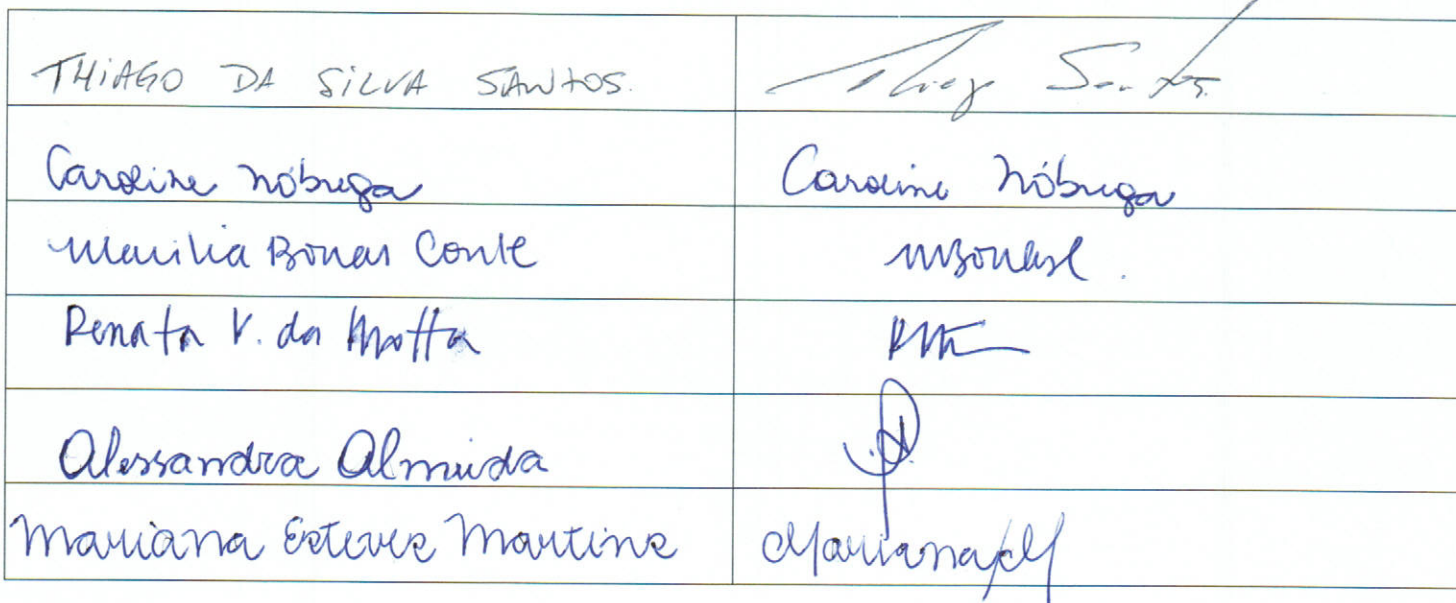 THIAGO DA SILVA SANTOS. Thiago Santos
Caroline Nóbrega Caroline Nóbrega
Marilia Bonas Conte
Renata V. da Motta
Alessandra Almeida
Mariana Esteves Martins Mariana